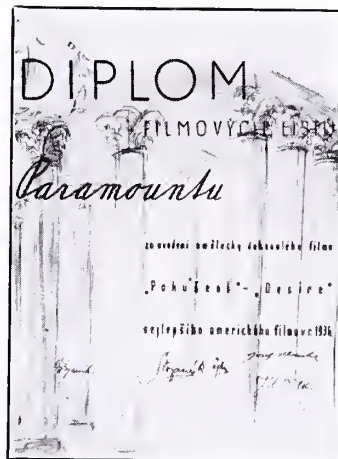 DIPLOM
FILMOVÝCH LISTŮ
Paramountu
za uvedení umělecky dokonalého filmu
„Pokušení“ - „Desire“
nejlepšího amerického filmu v r. 1936